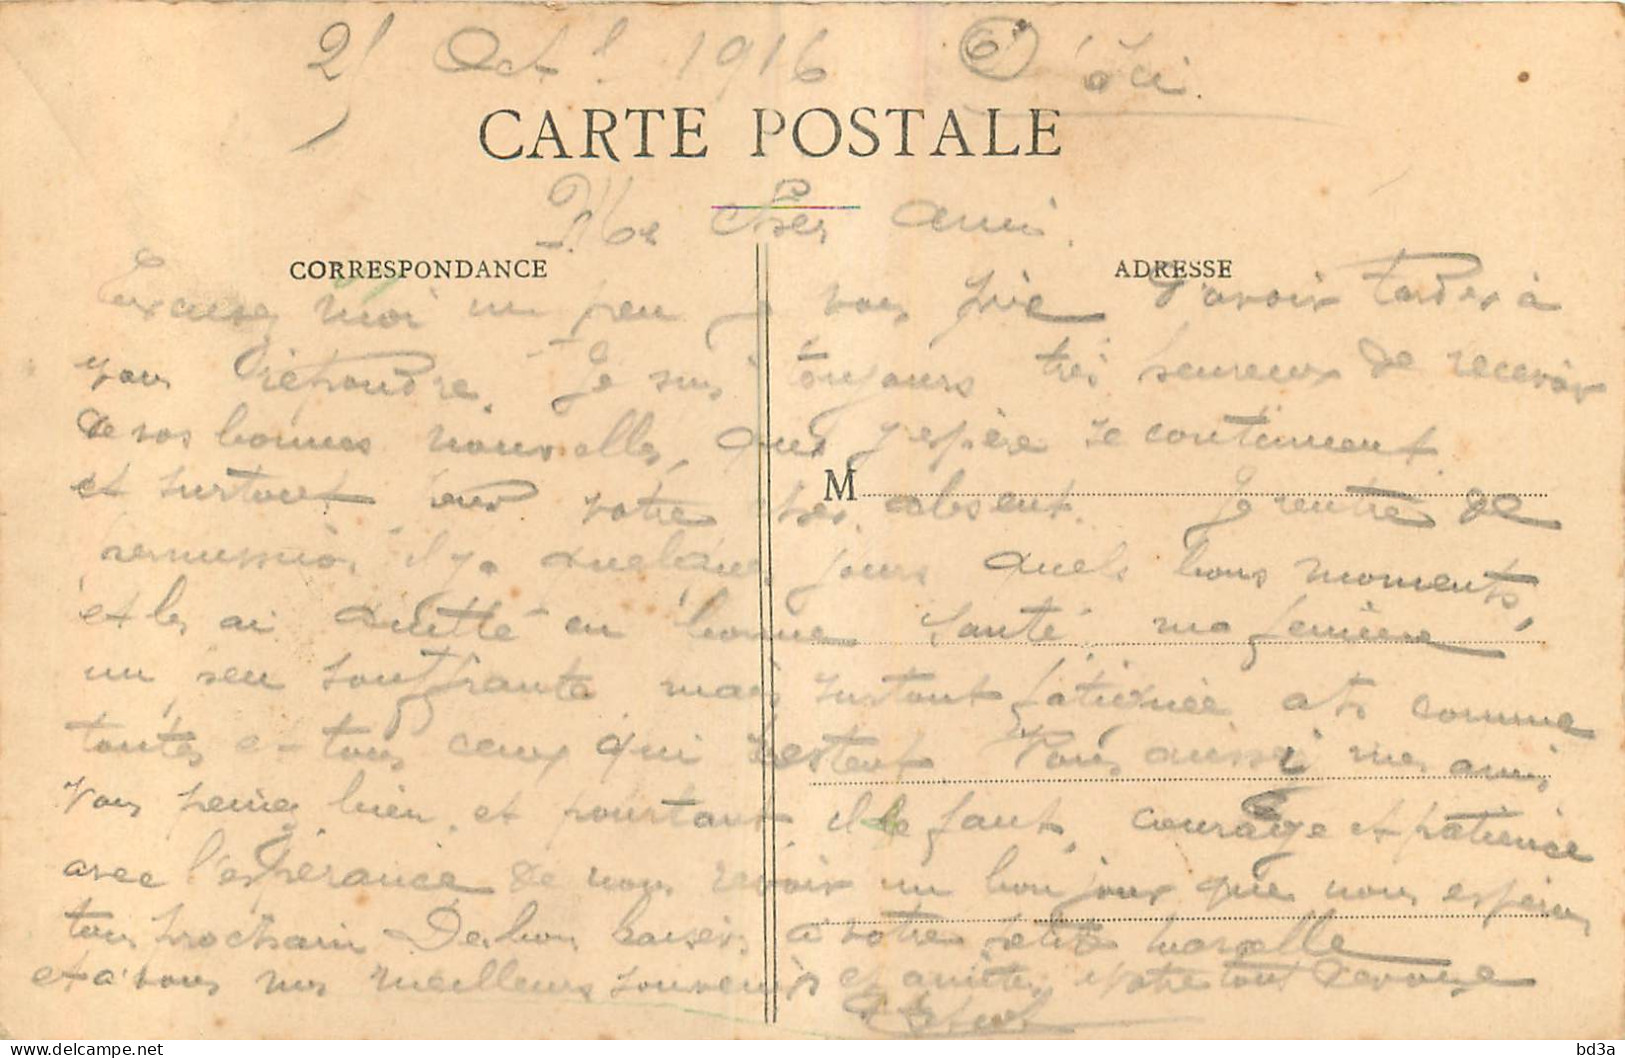 2 Oct 1916
CARTE POSTALE
Cher Ami.
CORRESPONDANCE ADRESSE
Excusez moi un peu je vous prie d'avoir tarder à
vous répondre. Je suis toujours très heureux de recevoir
de vos bonnes nouvelles, que j'espère se continuent
M
et surtout votre cher absent. Je rentre de
permission il y a quelques jours quels bons moments,
et les ai quitté en bonne santé ma femme
un peu souffrante mais surtout fatiguée etc comme
toutes et tous ceux qui restent. Vous aussi mes amis
vous peinez bien et pourtant il le faut, courage et patience
avec l'espérance de vous revoir un bon jour que nous espérons
tous prochain De bons baisers à votre petite Marcelle
et à vous mes meilleurs souvenirs et amitiés votre tout dévoué
bd3a